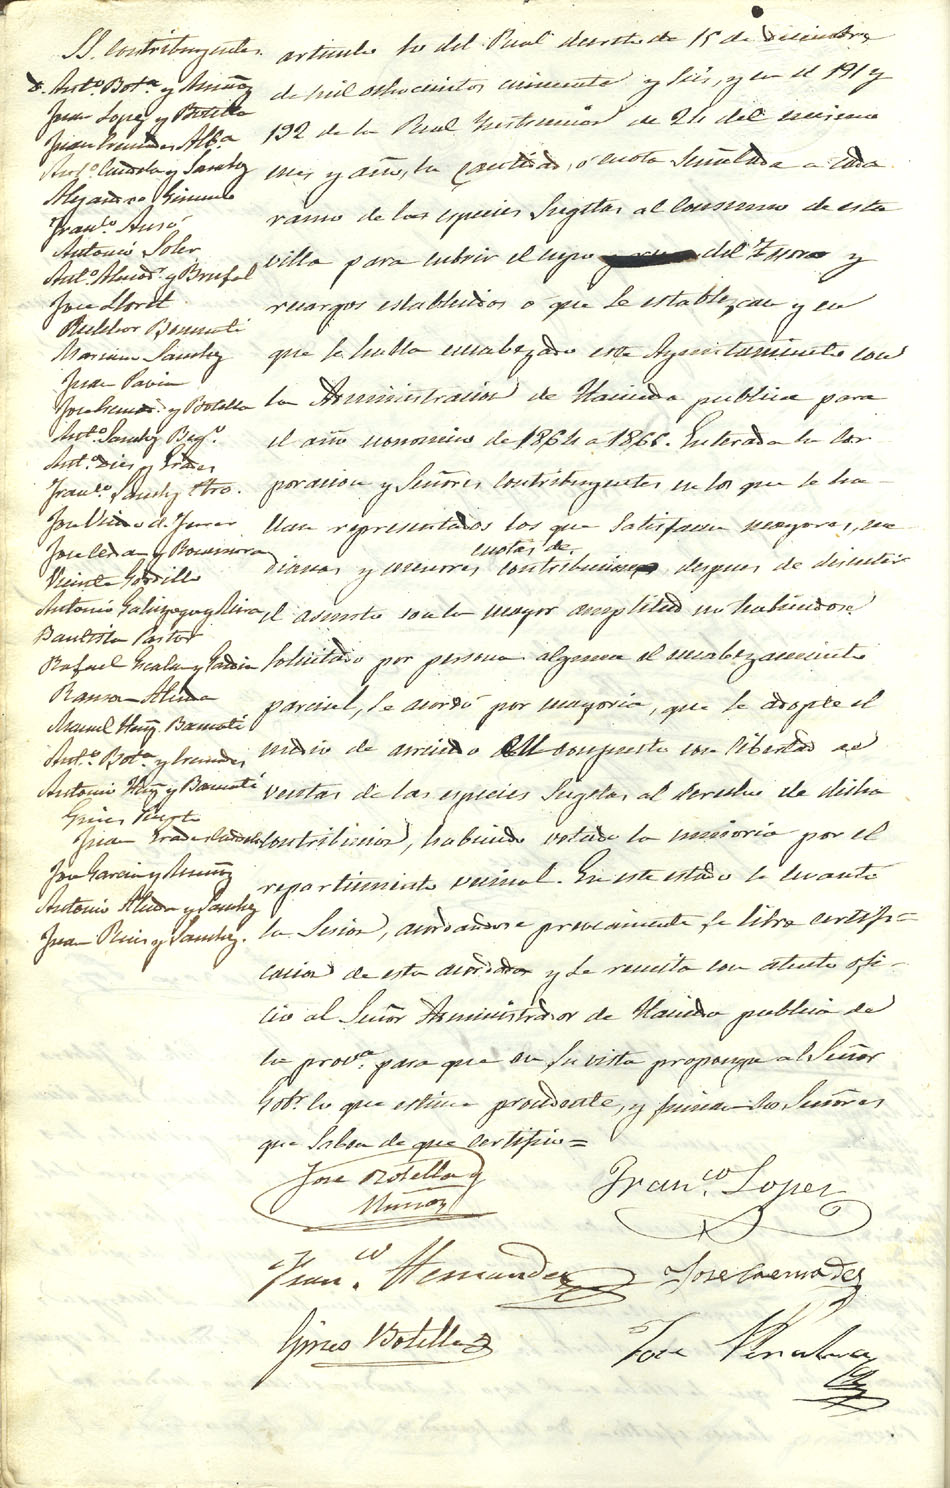 SS. Contribuyentes
D. Anto. Bota. y Muñoz
Juan Lopez y Botella
Juan Cremades Alba
Anto. Candela y Sanchez
Alejandro Gimenez
Franco. Ausó
Antonio Soler
Anto. Almodr. y Brufal
Jose Lloret
Melchor Bonmati
Mariano Sanchez
Juan Pavia
Jose y Botella
Anto. Sanchez
Anto. Dies y Prades
Franco. Sanchez Otro.
Jose
Jose Cerdan y
Vicente Gordillo
Antonio Galinzoga y Riera
Bautista Pastor
Rafael Escalan y Garcia
Ramon Aleda
Manuel Herz. Bonmati
Anto. Bota. y Cremades
Antonio Hez. y Bonmati
Gines
Juan Prades
Jose Garcia y Muñoz
Antonio Aleda y Sanchez
Juan Ruis y Sanchez.
articulo to del Real decreto de 15 de diciembre
de mil ochocientos cincuenta y seis, y en el 191 y
192 de la Real Instruccion de 24 del mismo
mes y año, la cantidad, ó cuota señalada a cada
ramo de las especies sugetas al consumo de esta
villa para cubrir el cupo del Tesoro y
recargos establecidos o que se establezcan y en
que se halla encabezado este Ayuntamiento con
la Administracion de Hacienda publica para
el año economico de 1864 a 1865. Enterada la Cor
poracion y Señores Contribuyentes en los que se ha-
llan representados los que satisfacen mayores, me
cuotas de
dianas y menores contribuciones despues de discutir
el asunto con la mayor amplitud no habiendose
solicitado por persona alguna el encabezamiento
parcial, se acordó por mayoria, que se adopte el
medio de arriendo en conpuesto con libertad de
ventas de las especies sugetas al derecho de dicha
contribucion, habiendo votado la minoria por el
repartimiento vecinal. En este estado se levantó
la Sesion, acordandose previamente se libre certifi=
cacion de esta acordada y se remita con atento ofi-
cio al Señor Administrador de Hacienda publica de
la prova. para que en su vista proponga al Señor
Gobr. lo que estime prudente, y firman los Señores
que saben de que certifico=
Jose Botella y
Muñoz
Franco. Lopez
Franco. Hernandez
Jose Cremades
Gines Botella
Jose Penalva